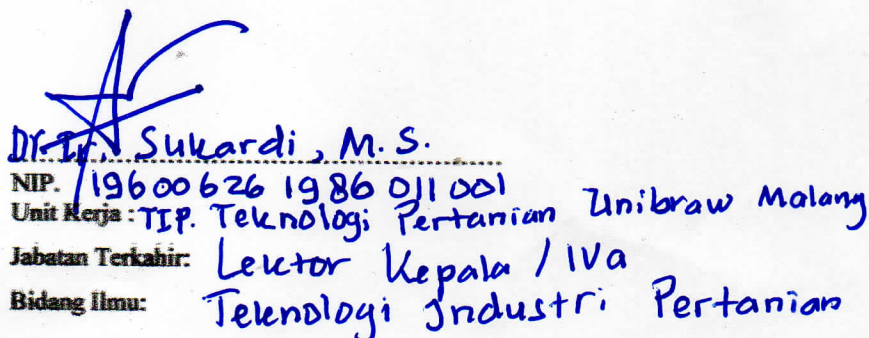 Dr. Ir. Sukardi, M.S.
NIP. 19600626 1986 011 001
Unit Kerja : TIP. Teknologi Pertanian Unibraw Malang
Jabatan Terkahir: Lektor Kepala / IVa
Bidang Ilmu: Teknologi Industri Pertanian